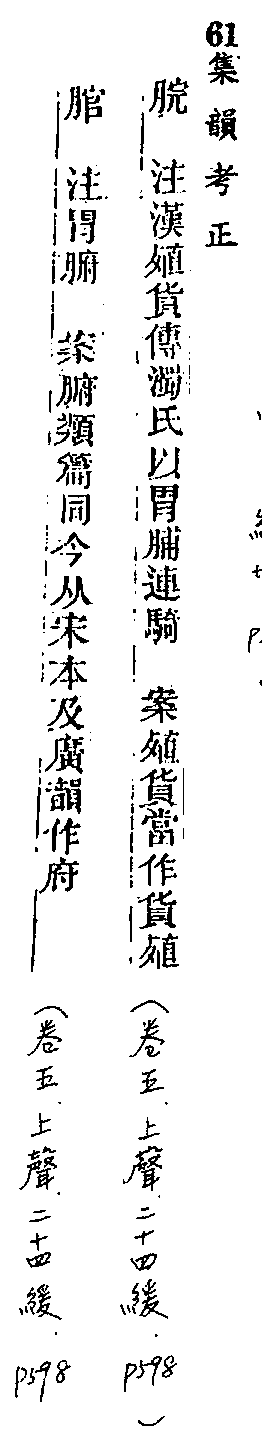 61集韻考正
脘 注漢殖貨傳濁氏以胃脯連騎 案殖貨當作貨殖(卷五、上聲、二十四緩、p598)
腤 注胃腑 案腑類篇同今从宋本及廣韻作府(卷五、上聲、二十四緩、p598